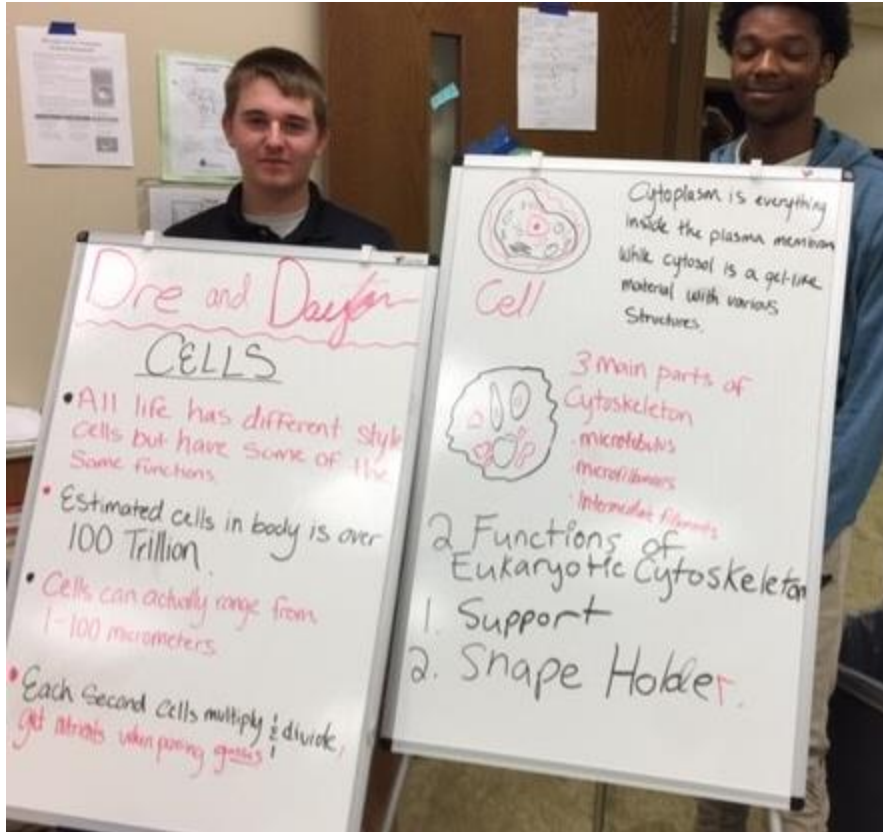 Dre and Dayton
CELLS
• All life has different style
cells but have some of the
same functions.
• Estimated cells in body is over
100 Trillion.
• Cells can actually range from
1-100 micrometers
• Each second cells multiply & divide,
get nutrients when passing gasses
Cell
Cytoplasm is everything
inside the plasma membran
while cytosol is a gel-like
material with various
Structures.
3 main parts of
Cytoskeleton
· microtubulus
· microfilamers
· Intermediate filaments
2 Functions of
Eukaryotic Cytoskeleton
1. Support
2. Shape Holder.